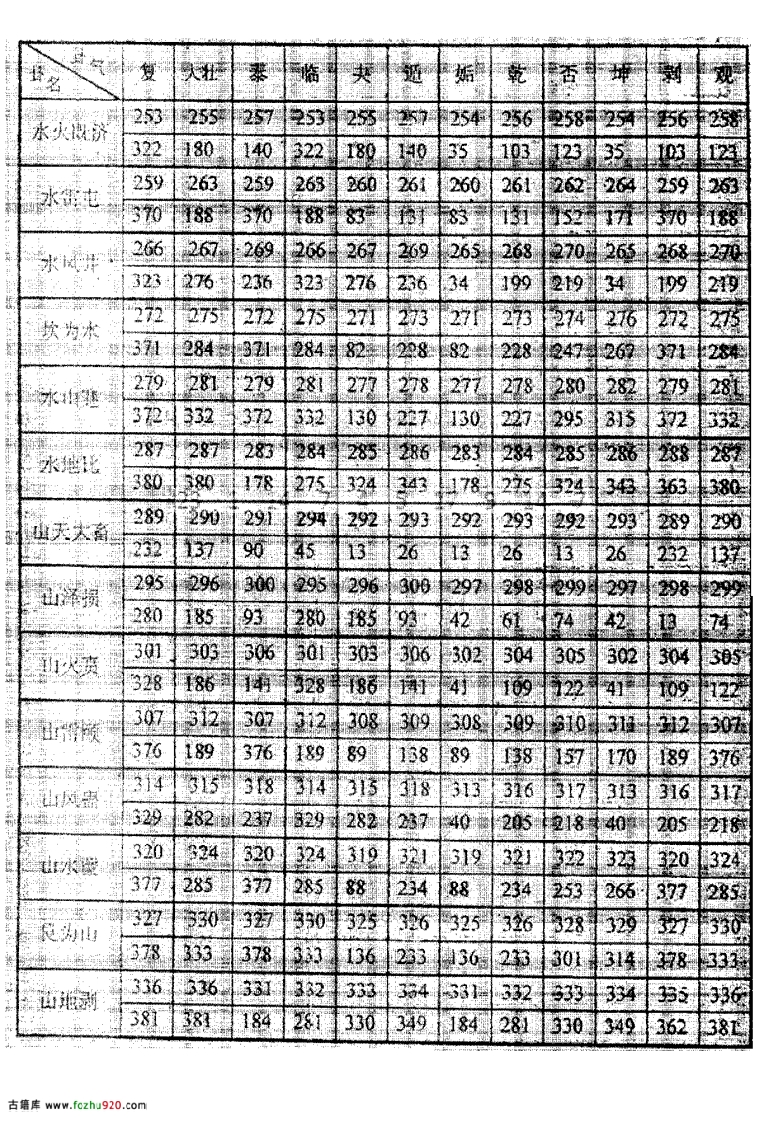 卦气 复 大壮 泰 临 夬 遁 姤 乾 否 坤 剥 观
卦名
253 255 257 253 255 257 254 256 258 254 256 258
水火既济
322 180 140 322 180 140 35 103 123 35 103 123
259 263 259 263 260 261 260 261 262 264 259 263
水雷屯
370 188 370 188 83 131 83 131 152 171 370 188
266 267 269 266 267 269 265 268 270 265 268 270
水风井
323 276 236 323 276 236 34 199 219 34 199 219
272 275 272 275 271 273 271 273 274 276 272 275
坎为水
371 284 371 284 82 228 82 228 247 267 371 284
279 281 279 281 277 278 277 278 280 282 279 281
水山蹇
372 332 372 332 130 227 130 227 295 315 372 332
287 287 283 284 285 286 283 284 285 286 288 287
水地比
380 380 178 275 324 343 178 275 324 343 363 380
289 290 291 294 292 293 292 293 292 293 289 290
山天大畜
232 137 90 45 13 26 13 26 13 26 232 137
295 296 300 295 296 300 297 298 299 297 298 299
山泽损
280 185 93 280 185 93 42 61 74 42 13 74
301 303 306 301 303 306 302 304 305 302 304 305
山火贲
328 186 141 328 186 141 41 109 122 41 109 122
307 312 307 312 308 309 308 309 310 311 312 307
山雷颐
376 189 376 189 89 138 89 138 157 170 189 376
314 315 318 314 315 318 313 316 317 313 316 317
山风蛊
329 282 237 329 282 237 40 205 218 40 205 218
320 324 320 324 319 321 319 321 322 323 320 324
山水蒙
377 285 377 285 88 234 88 234 253 266 377 285
327 330 327 330 325 326 325 326 328 329 327 330
艮为山
378 333 378 333 136 233 136 233 301 314 378 333
336 336 331 332 333 334 331 332 333 334 335 336
山地剥
381 381 184 281 330 349 184 281 330 349 362 381
古籍库 www.fozhu920.com